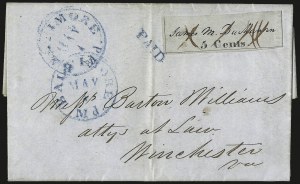 BALTIMORE
MAY
BALTIMORE
MAY
PAID
James M. Buchanan
5 Cents.
Messrs Barton Williams
attys at Law.
Winchester
Va